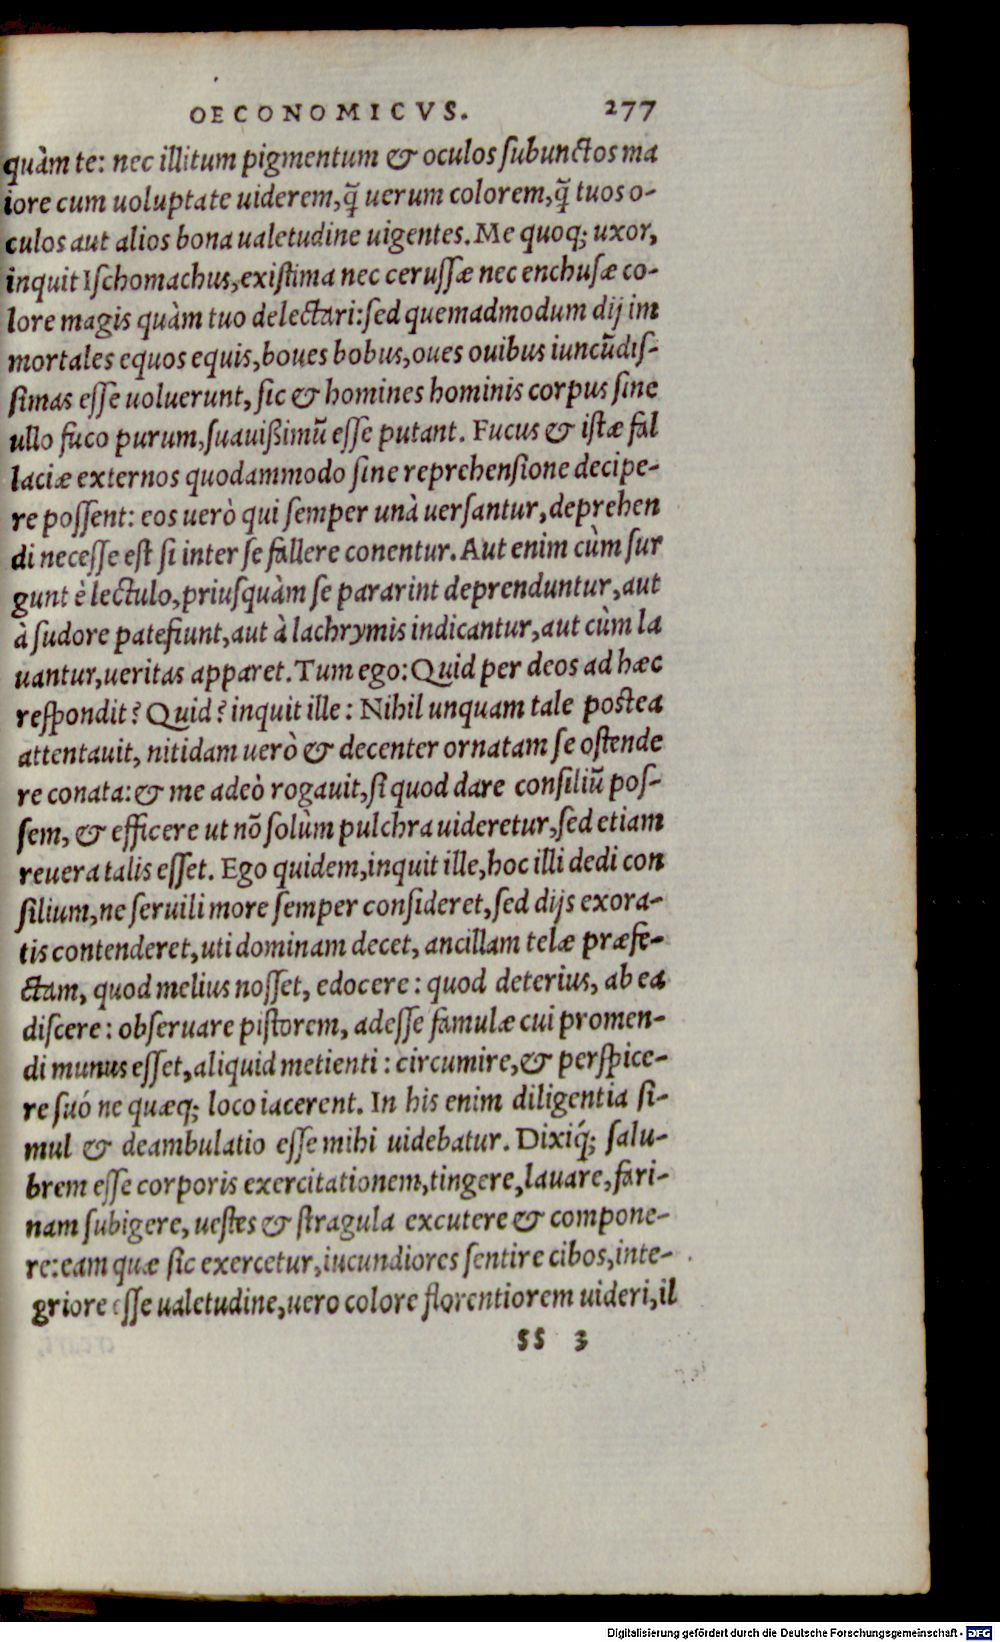 OECONOMICVS. 277
quàm te: nec illitum pigmentum & oculos ſubunctos ma
iore cum uoluptate uiderem,q̃ uerum colorem,q̃ tuos o-
culos aut alios bona ualetudine uigentes. Me quoq; uxor,
inquit Iſchomachus,exiſtima nec ceruſſæ nec enchuſæ co-
lore magis quàm tuo delectari:ſed quemadmodum dij im
mortales equos equis,boues bobus,oues ouibus iuncũdiſ-
ſimas eſſe uoluerunt, ſic & homines hominis corpus ſine
ullo fuco purum,ſuauißimũ eſſe putant. Fucus & iſtæ fal
laciæ externos quodammodo ſine reprehenſione decipe-
re poſſent: eos uerò qui ſemper unà uerſantur,deprehen
di neceſſe eſt ſi inter ſe fallere conentur. Aut enim cùm ſur
gunt è lectulo,priuſquàm ſe pararint deprenduntur,aut
à ſudore patefiunt,aut à lachrymis indicantur,aut cùm la
uantur,ueritas apparet. Tum ego: Quid per deos ad hæc
reſpondit? Quid? inquit ille: Nihil unquam tale postea
attentauit, nitidam uerò & decenter ornatam ſe oſtende
re conata: & me adeò rogauit,ſi quod dare conſiliũ poſ-
ſem, & efficere ut nõ ſolùm pulchra uideretur,ſed etiam
reuera talis eſſet. Ego quidem,inquit ille,hoc illi dedi con
ſilium,ne ſeruili more ſemper conſideret,ſed dijs exora-
tis contenderet,uti dominam decet, ancillam telæ præfe-
ctam, quod melius noſſet, edocere: quod deterius, ab ea
diſcere: obſeruare piſtorem, adeſſe famulæ cui promen-
di munus eſſet,aliquid metienti: circumire,& perſpice-
re ſuó ne quæq; loco iacerent. In his enim diligentia ſi-
mul & deambulatio eſſe mihi uidebatur. Dixiq́; ſalu-
brem eſſe corporis exercitationem,tingere,lauare,fari-
nam ſubigere, ueſtes & ſtragula excutere & compone-
re:eam quæ ſic exercetur,iucundiores ſentire cibos,inte-
griore eſſe ualetudine,uero colore florentiorem uideri,il
SS 3
Digitalisierung gefördert durch die Deutsche Forschungsgemeinschaft - DFG